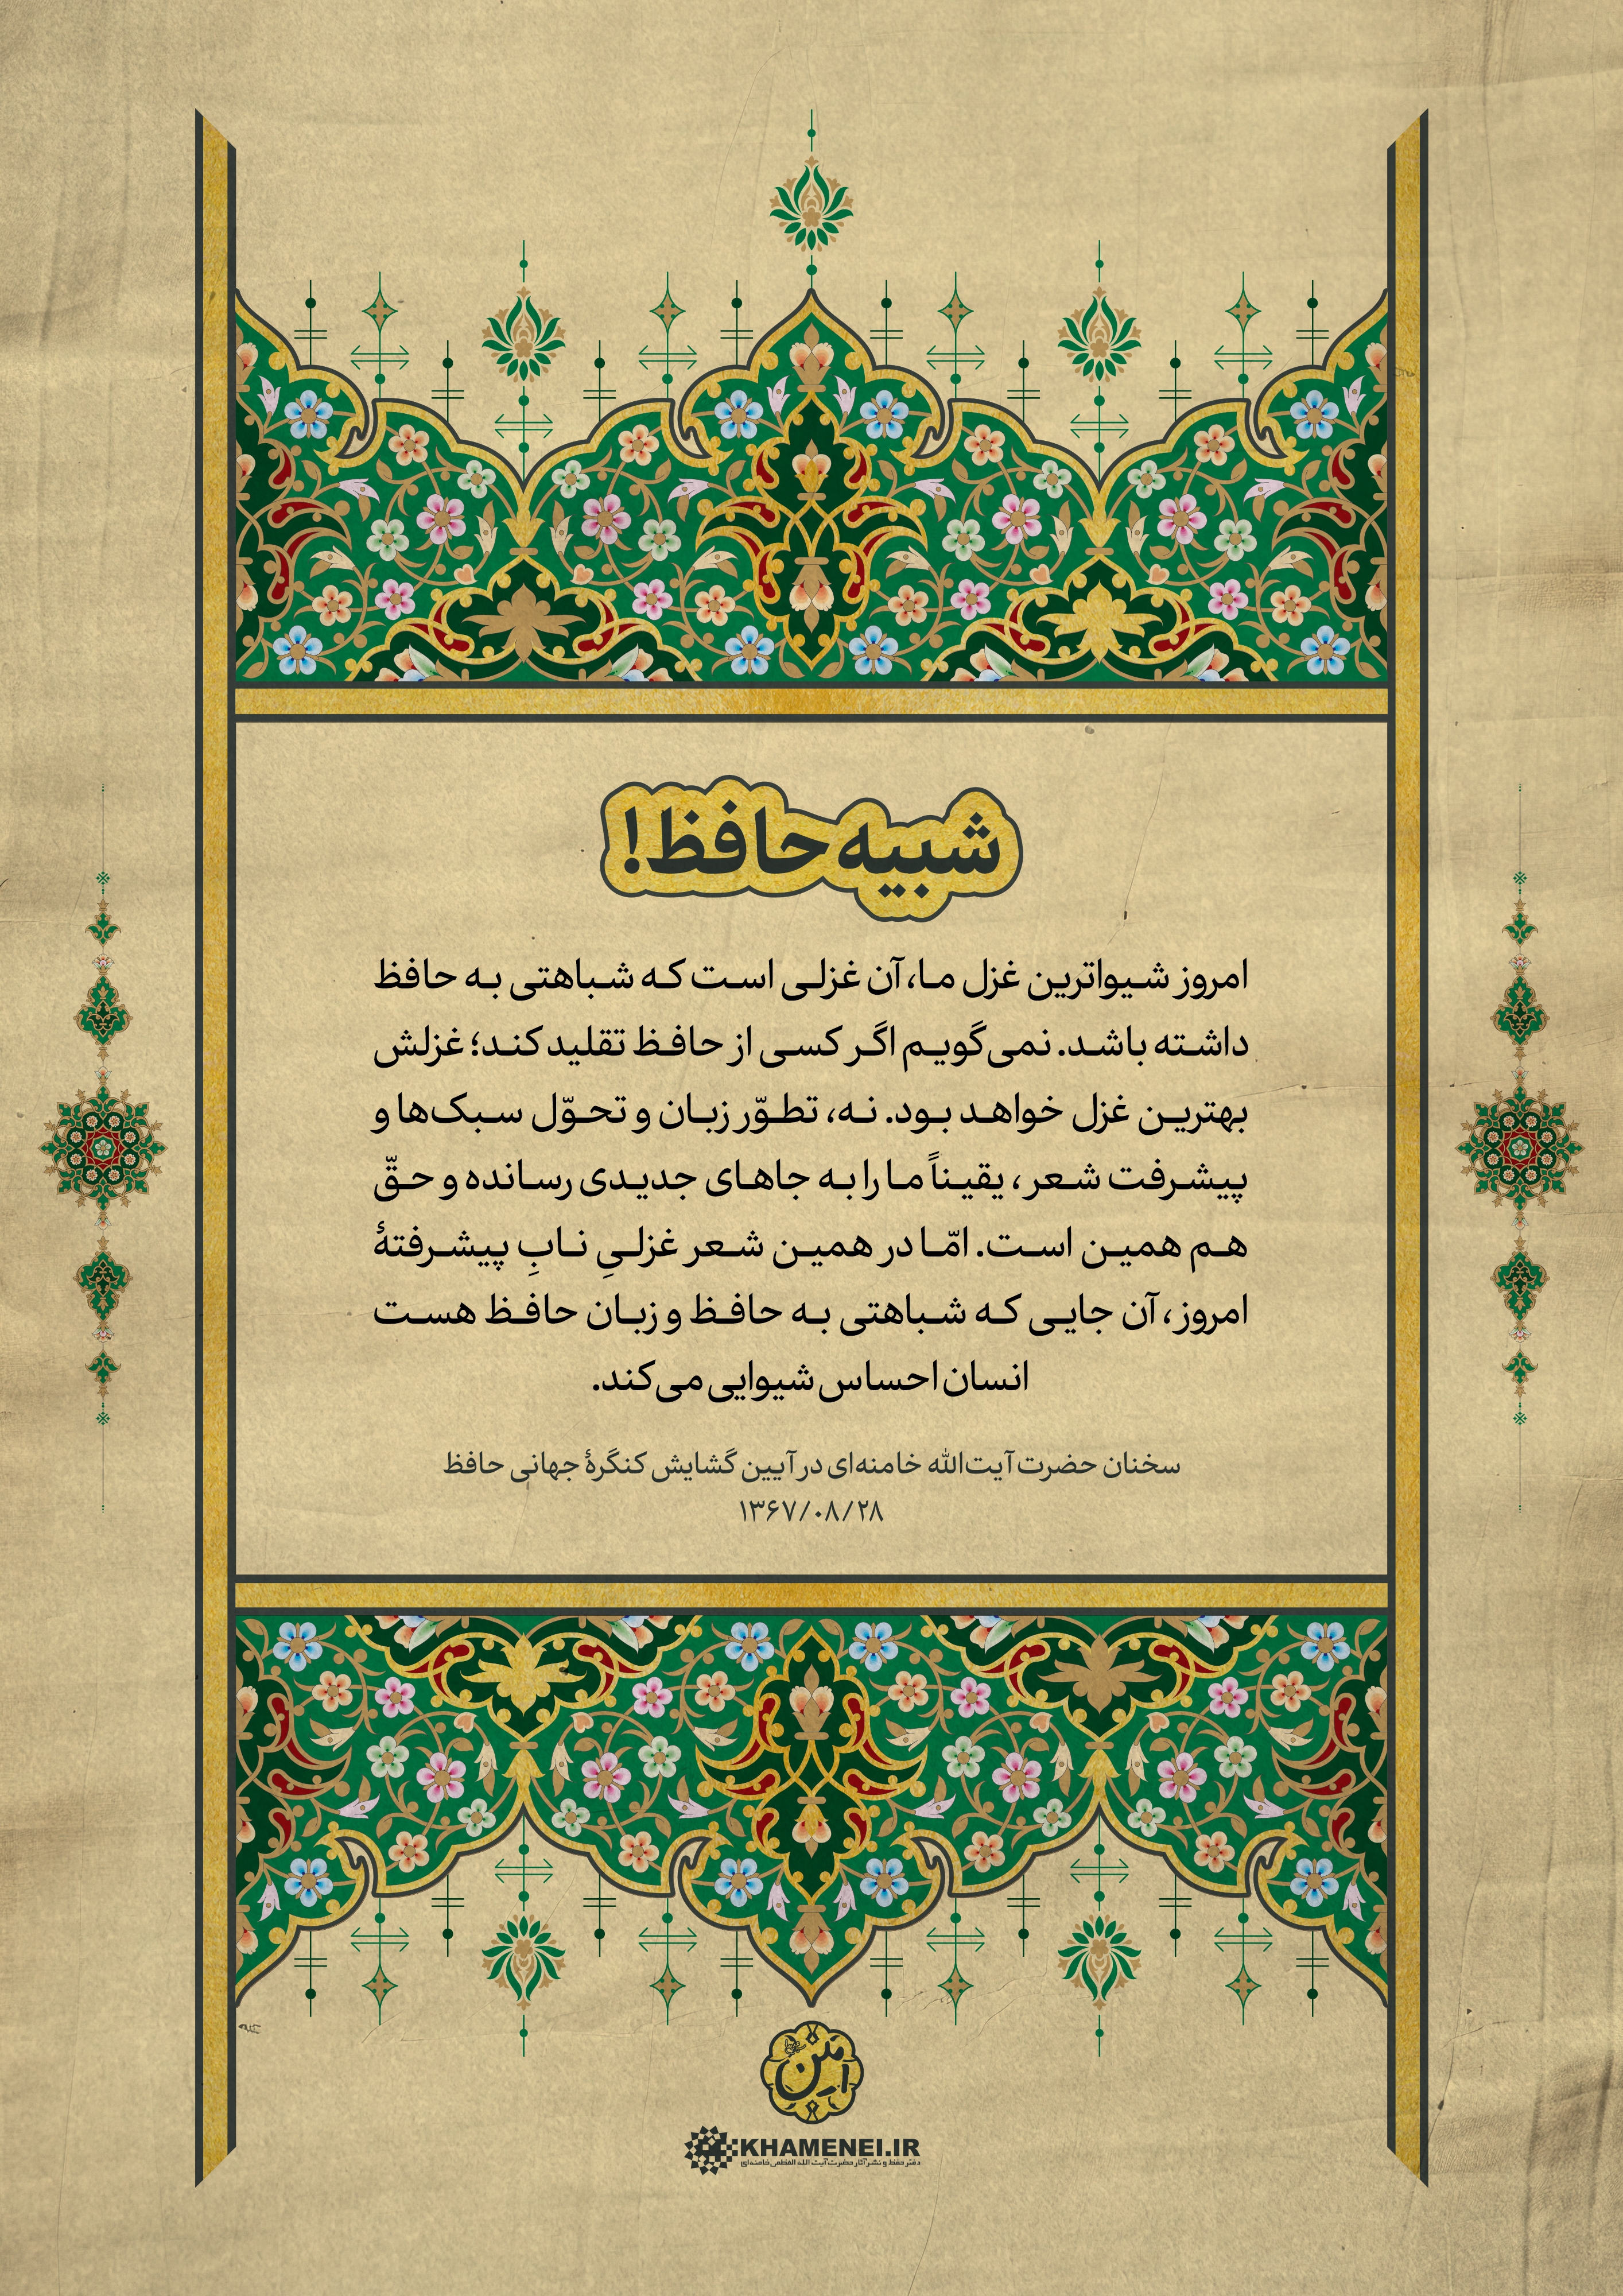 شبیه حافظ!
امروز شیواترین غزل ما، آن غزلی است که شباهتی به حافظ
داشته باشد. نمی‌گویم اگر کسی از حافظ تقلید کند؛ غزلش
بهترین غزل خواهد بود. نه، تطوّر زبان و تحوّل سبک‌ها و
پیشرفت شعر، یقیناً ما را به جاهای جدیدی رسانده و حقّ
هم همین است. امّا در همین شعر غزلیِ نابِ پیشرفتهٔ
امروز، آن جایی که شباهتی به حافظ و زبان حافظ هست
انسان احساس شیوایی می‌کند.
سخنان حضرت آیت‌الله خامنه‌ای در آیین گشایش کنگرهٔ جهانی حافظ
۱۳۶۷/۰۸/۲۸
KHAMENEI.IR
دفتر حفظ و نشر آثار حضرت آیت الله العظمی خامنه‌ای